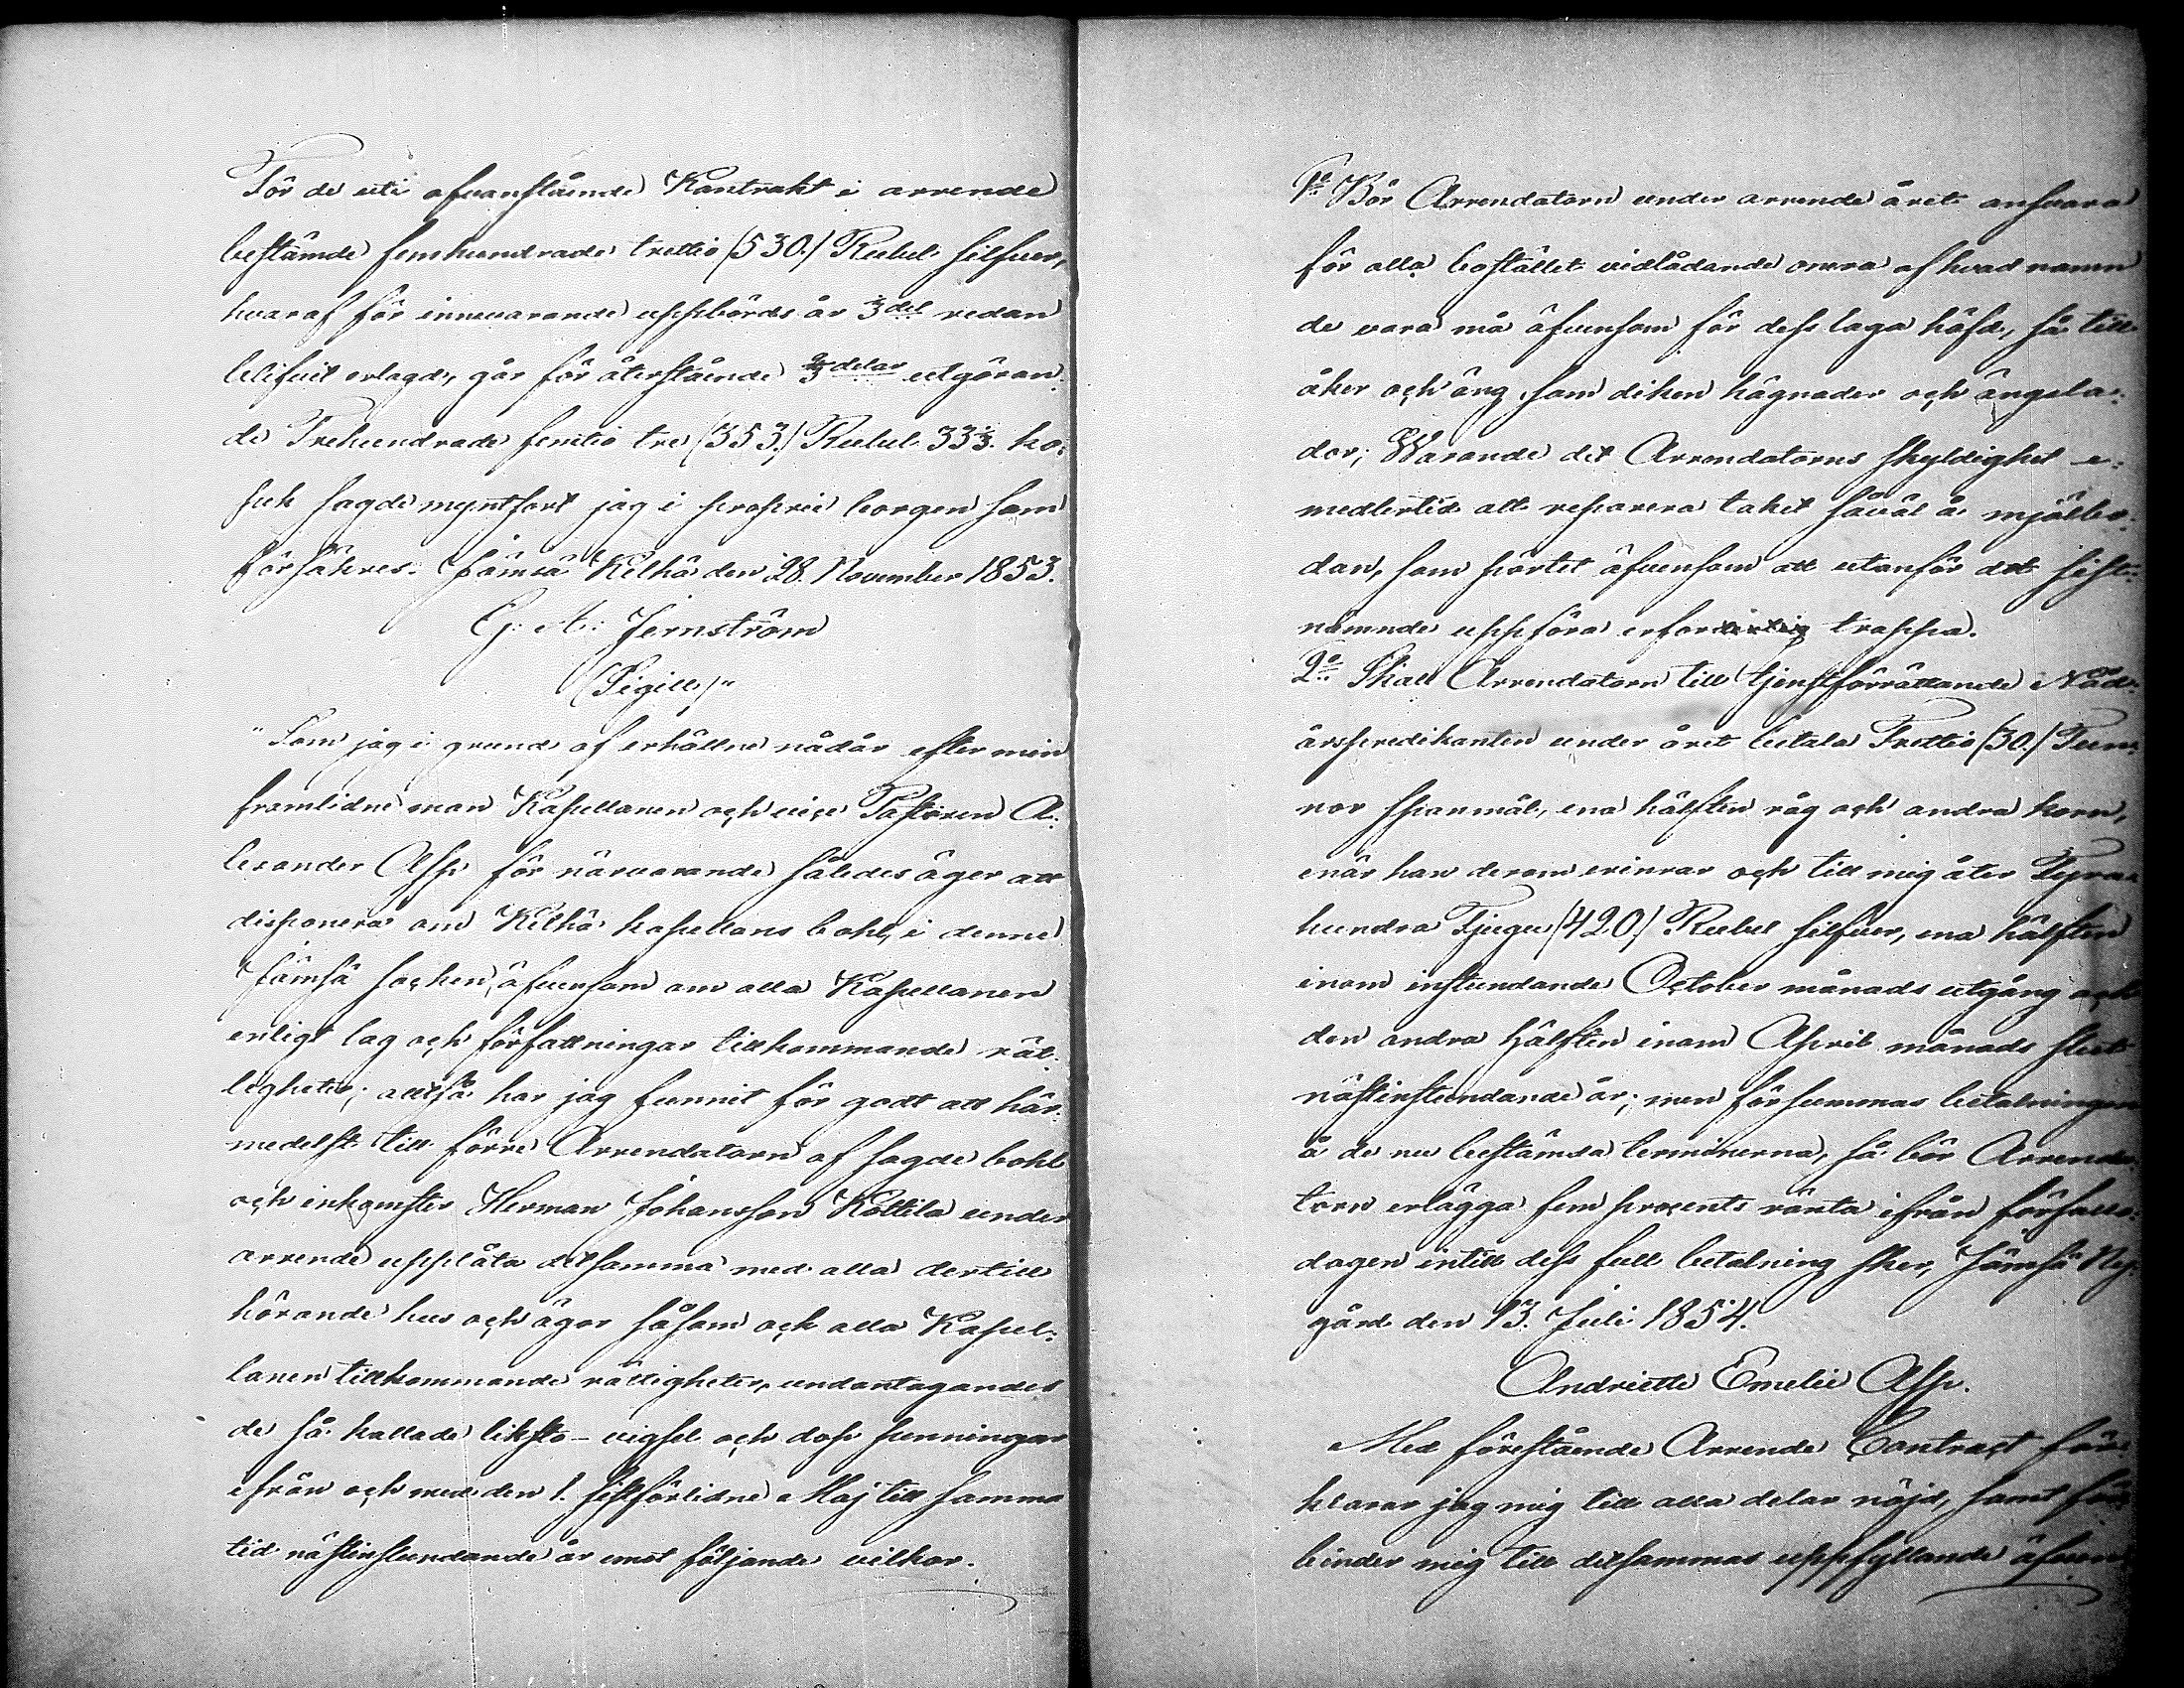 För de uti ofvanstående Kontrakt i arrende
bestämde femhundrade trettio (530.) Rubel silfver,
hvaraf för innevarande uppbörds år 3del redan
blifvit erlagd, går för återstående 2/3 delar utgöran-
de Trehundrade femtio tre (353.) Rubel 33 1/3. ko-
pek sagde myntsort jag i proprie borgen som
försäkres. Jämsä Kelhä den 28. November 1853.
G: A: Jernström
(Sigill)"
"Som jag i grund af erhållne nådår efter min
framlidne man Kapellanen och vice Pastoren A-
lexander Asp för närvarande således äger att
disponera om Kelhä kapellans bohl, i denne
Jämsä socken, äfvensom om alla Kapellanen
enligt lag och författningar tillkommande rät-
tigheter; alltså har jag funnit för godt att här-
medelst till förre Arrendatorn af sagde bohl
och inkomster Herman Johansson Kottila under
arrende upplåta detsamma med alla dertill
hörande hus och ägor såsom och alla Kapel-
lanen tillkommande rättigheter, undantagandes
de så kallade liksto- vigsel och dop penningar
ifrån och med den 1. sistförlidne Maj till samma
tid nästinstundande år emot följande vilkor.
1o Bör Arrendatorn under arrende året ansvara
för alla bostället vidlådande onera af hvad namn
de vara må äfvensom för dess laga häfd, så till
åker och äng, som diken hägnader och ängsla-
dor; Warande det Arrendatorns skyldighet e-
medlertid att reparera taket såväl å mjölbo-
dan, som pörtet äfvensom att utanför det sist-
nämnde uppföra erforderlig trappa.
2o Skall Arrendatorn till tjenstförrättande Nåd-
årspredikanten under året betala Trettio (30.) Tun-
nor spanmål, ena hälften råg och andra korn,
enär han derom erinrar och till mig åter Fyra-
hundra Tjugu (420.) Rubel silfver, ena hälften
inom instundande October månads utgång och
den andra hälften inom April månads slut
nästinstundande år; men försummas betalningen
å de nu bestämda terminerna, så bör Arrenda-
torn erlägga fem procents ränta ifrån förfallo-
dagen intill dess full betalning sker, Jämsä Ny-
gård den 13. Juli 1854.
Andriette Emelie Asp.
Med förestående Arrende Contract för-
klarar jag mig till alla delar nöjd, samt för-
binder mig till detsammas uppfyllande äfven